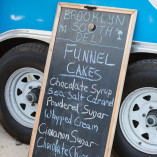 BROOKLYN
SOUTH
FUNNEL
CAKES
Chocolate Syrup
Sea Salt Caramel
Powdered Sugar
Whipped Cream
Cinnamon Sugar
Chocolate Chips